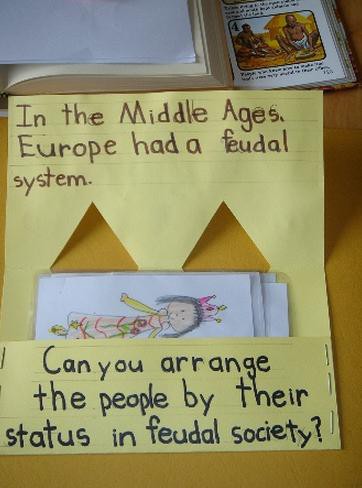 In the Middle Ages.
Europe had a feudal
system.
Can you arrange
the people by their
status in feudal society?